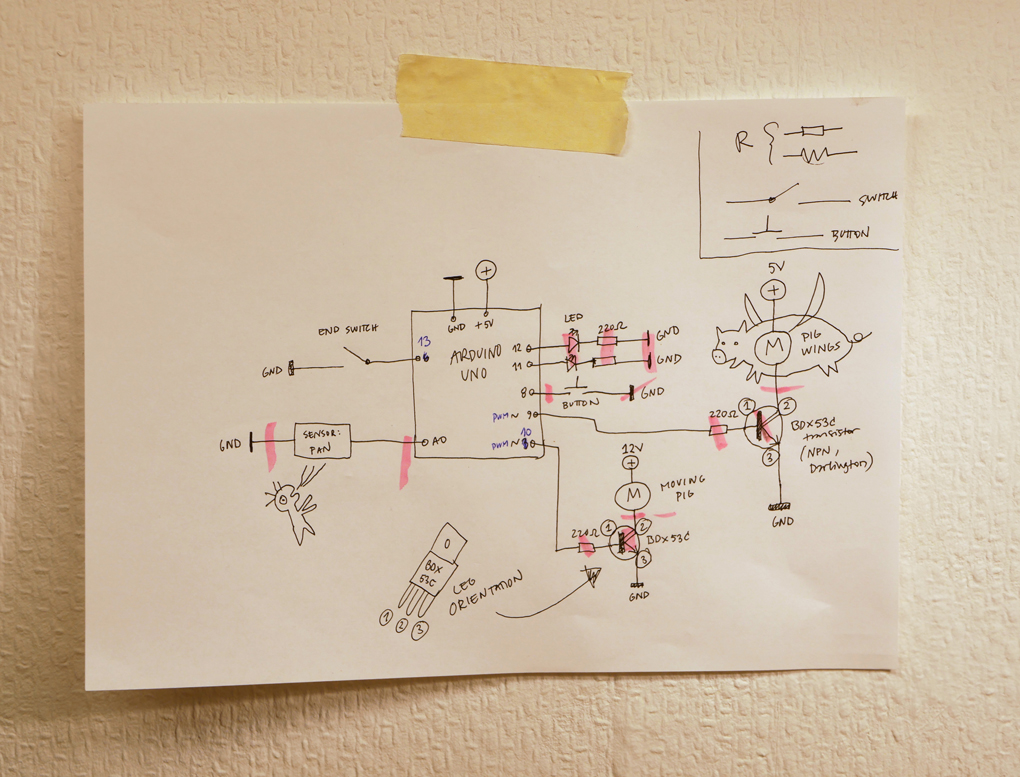 R
SWITCH
BUTTON
5V
PIG
WINGS
M
END SWITCH
GND
GND +5V
13
ARDUINO
UNO
12
11
8
PWM ~ 9
10
PWM ~
A0
LED
220Ω
GND
GND
BUTTON
GND
GND
SENSOR:
FAN
220Ω
1
2
3
BDX53C
transistor
(NPN,
Darlington)
GND
12V
M
MOVING
PIG
220Ω
1
2
3
BDX53C
GND
BDX
53C
LEG
ORIENTATION
1
2
3